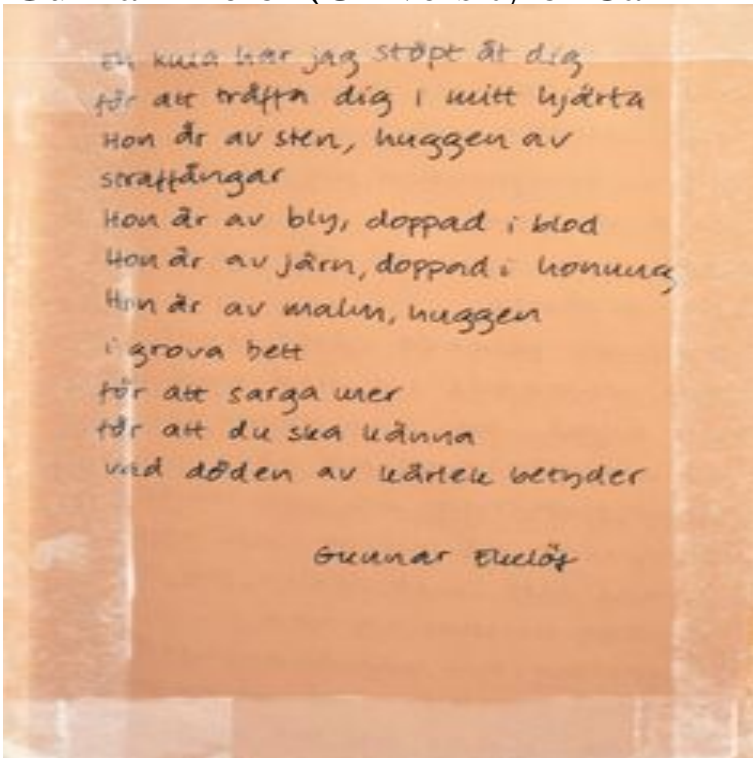 En kula har jag stöpt åt dig
för att träffa dig i mitt hjärta
Hon är av sten, huggen av
straffångar
Hon är av bly, doppad i blod
Hon är av järn, doppad i honung
Hon är av malm, huggen
i grova bett
för att sarga mer
för att du ska känna
vad döden av kärlek betyder
Gunnar Ekelöf